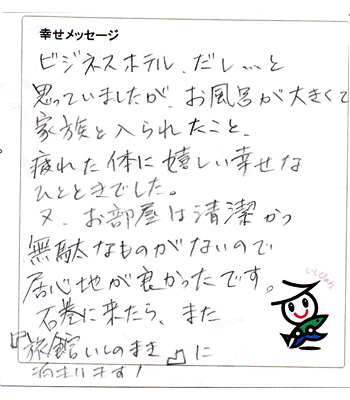 幸せメッセージ
ビジネスホテル、だし…と
思っていましたが、お風呂が大きくて
家族と入られたこと、
疲れた体に嬉しい幸せな
ひとときでした。
又、お部屋は清潔かつ
無駄なものがないので
居心地が良かったです。
石巻に来たら、また
『旅館いしのまき』に
泊まります!
いしぴょん